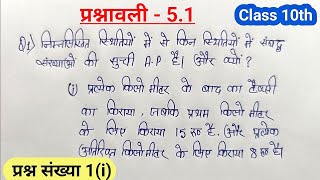 प्रश्नावली - 5.1
Class 10th
Q.1) निम्नलिखित स्थितियों में से किन स्थितियों में संबद्ध
संख्याओं की सूची A.P है। और क्यों?
(i) प्रत्येक किलो मीटर के बाद का टैक्सी
का किराया, जबकि प्रथम किलो मीटर
के लिए किराया 15 रु है. और प्रत्येक
अतिरिक्त किलो मीटर के लिए किराया 8 रु है।
प्रश्न संख्या 1(i)